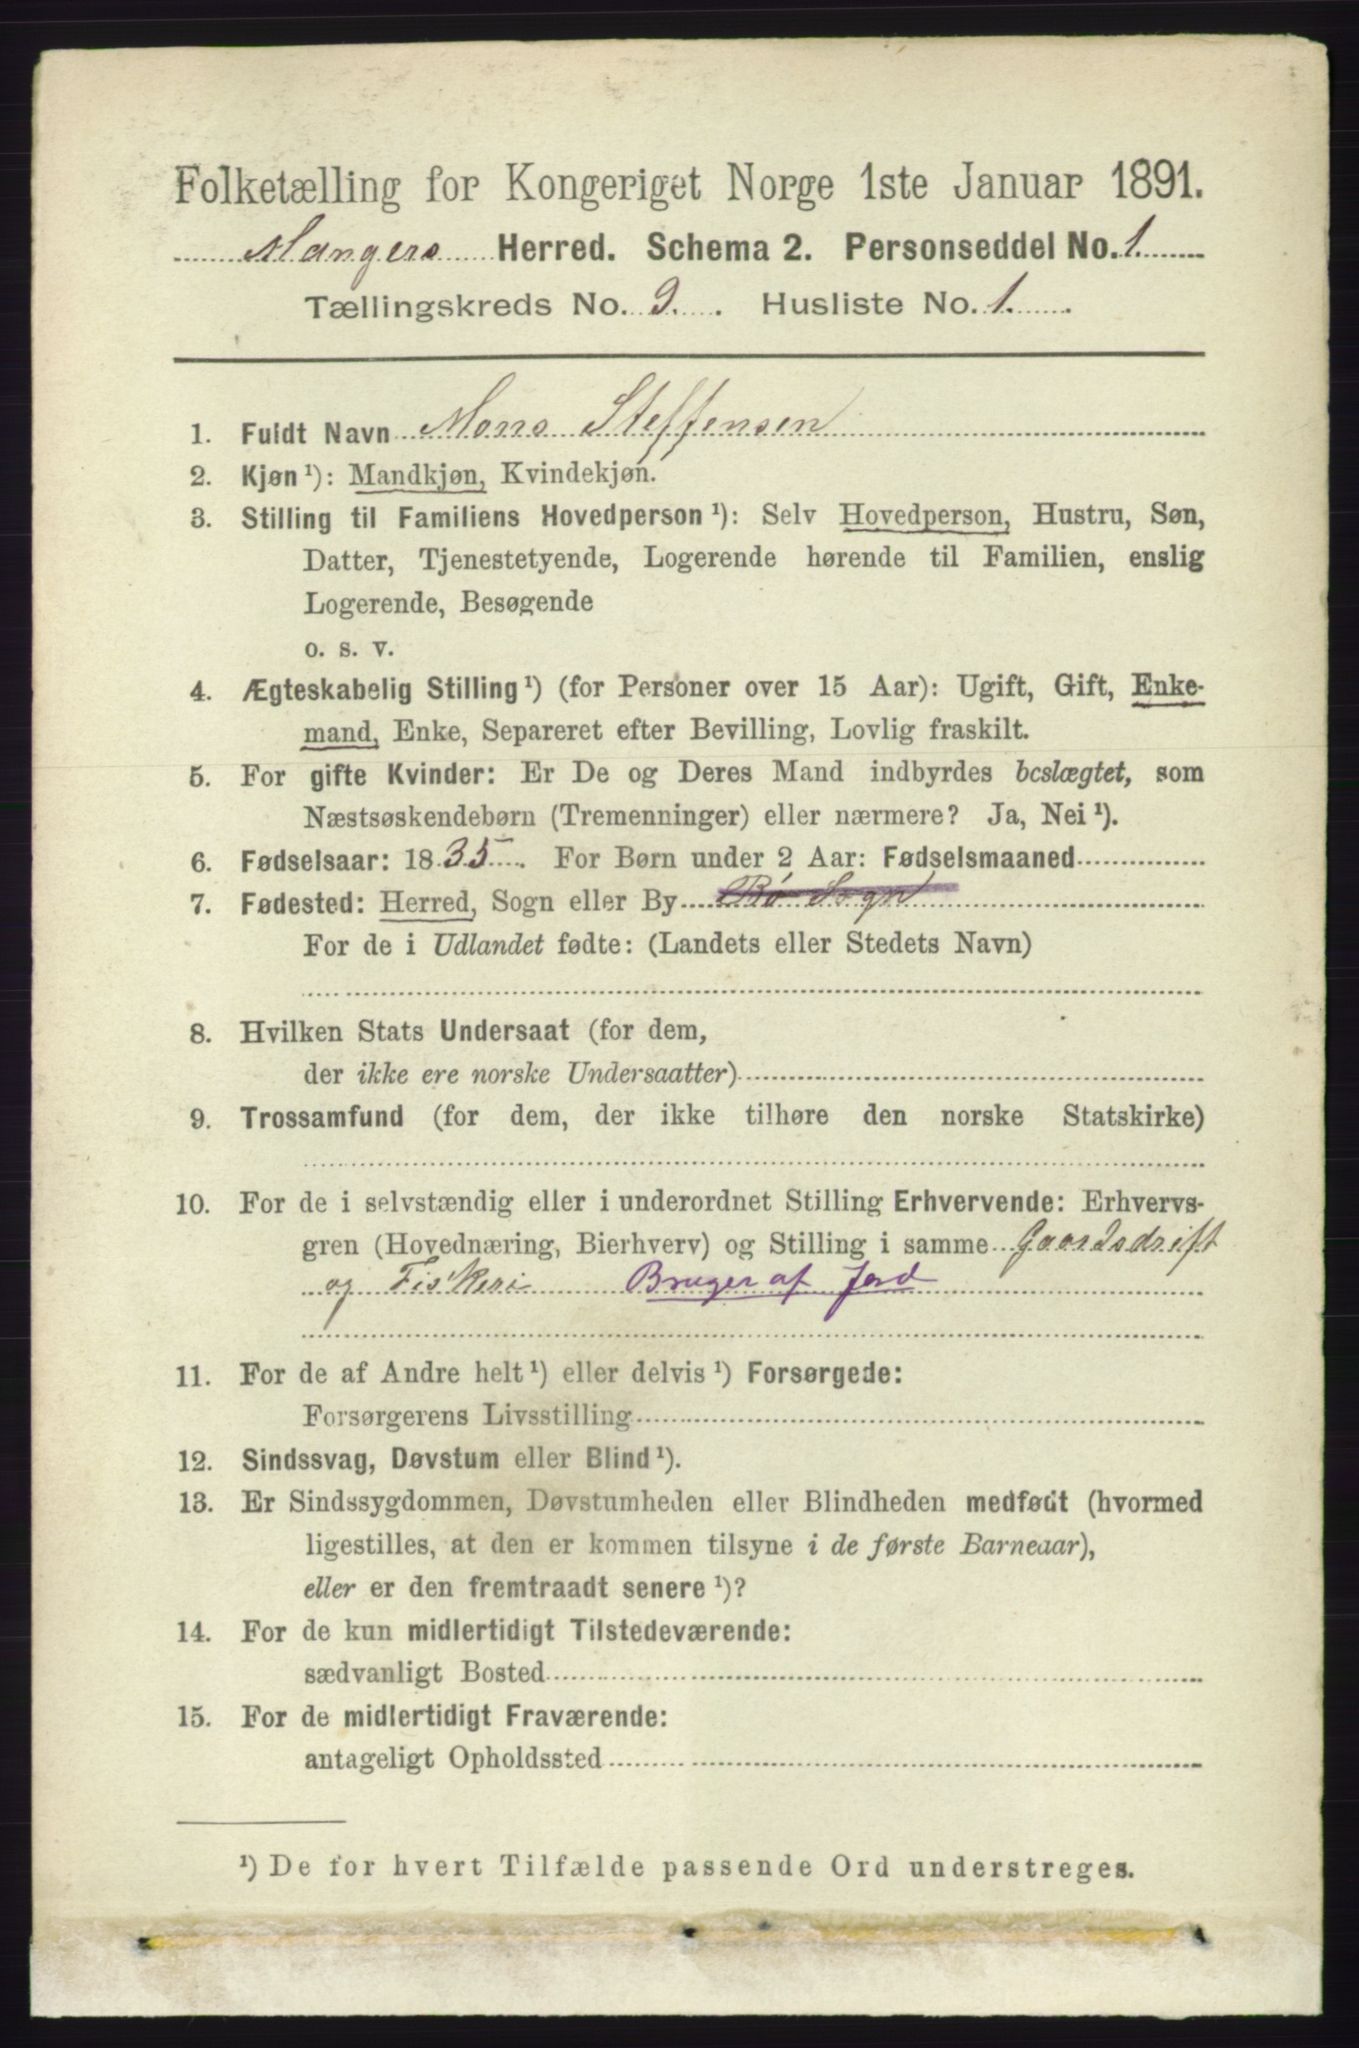 Folketælling for Kongeriget Norge 1ste Januar 1891.
Mangers Herred. Schema 2. Personseddel No. 1.
Tællingskreds No. 9. Husliste No. 1.
1. Fuldt Navn Mons Steffensen
2. Kjøn¹): Mandkjøn, Kvindekjøn.
3. Stilling til Familiens Hovedperson¹): Selv Hovedperson, Hustru, Søn,
Datter, Tjenestetyende, Logerende hørende til Familien, enslig
Logerende, Besøgende
o. s. v.
4. Ægteskabelig Stilling¹) (for Personer over 15 Aar): Ugift, Gift, Enke-
mand, Enke, Separeret efter Bevilling, Lovlig fraskilt.
5. For gifte Kvinder: Er De og Deres Mand indbyrdes beslægtet, som
Næstsøskendebørn (Tremenninger) eller nærmere? Ja, Nei¹).
6. Fødselsaar: 1835. For Børn under 2 Aar: Fødselsmaaned
7. Fødested: Herred, Sogn eller By Bø Sogn
For de i Udlandet fødte: (Landets eller Stedets Navn)
8. Hvilken Stats Undersaat (for dem,
der ikke ere norske Undersaatter)
9. Trossamfund (for dem, der ikke tilhøre den norske Statskirke)
10. For de i selvstændig eller i underordnet Stilling Erhvervende: Erhvervs-
gren (Hovednæring, Bierhverv) og Stilling i samme Gaardsdrift
og Fiskeri Bruger af Jord
11. For de af Andre helt¹) eller delvis¹) Forsørgede:
Forsørgerens Livsstilling
12. Sindssvag, Døvstum eller Blind¹).
13. Er Sindssygdommen, Døvstumheden eller Blindheden medfødt (hvormed
ligestilles, at den er kommen tilsyne i de første Barneaar),
eller er den fremtraadt senere¹)?
14. For de kun midlertidigt Tilstedeværende:
sædvanligt Bosted
15. For de midlertidigt Fraværende:
antageligt Opholdssted
¹) De for hvert Tilfælde passende Ord understreges.